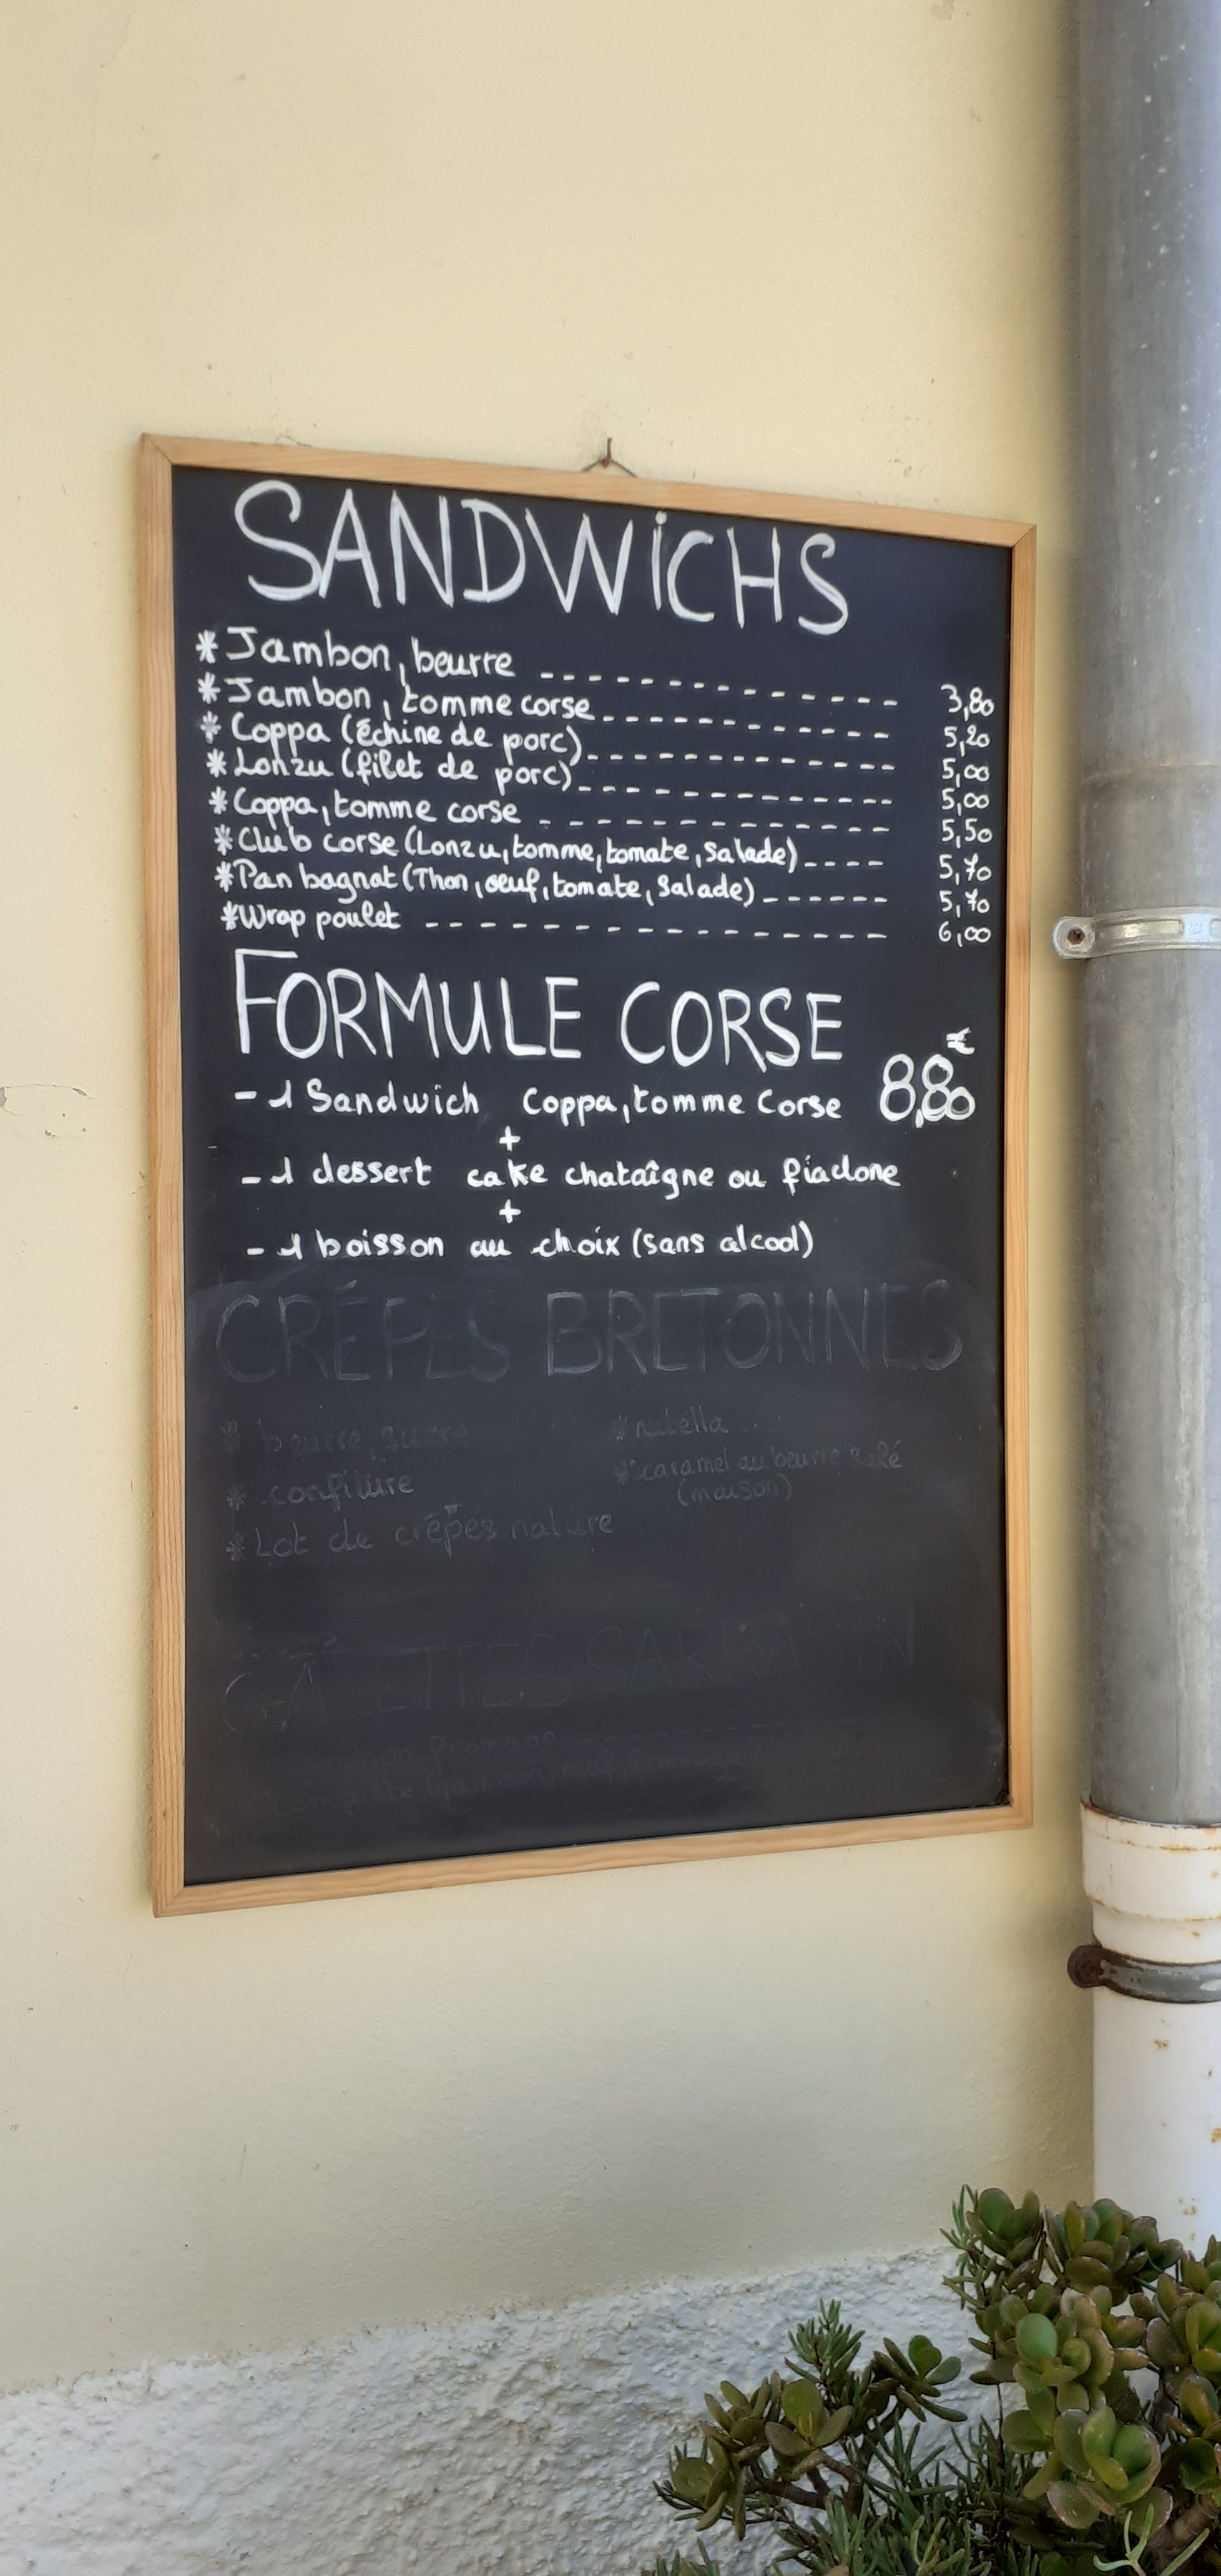 SANDWiCHS
* Jambon, beurre -------------- 3,80
* Jambon, tomme corse ------------- 5,20
* Coppa (échine de porc) ------------- 5,00
* Lonzu (filet de porc) ------------- 5,00
* Coppa, tomme corse ------------- 5,50
* Club corse (Lonzu, tomme, tomate, salade) ---- 5,70
* Pan bagnat (Thon, oeuf, tomate, salade) ------ 5,70
* Wrap poulet ---------------- 6,00
FORMULE CORSE
- 1 Sandwich Coppa, tomme Corse 8,80 €
+
- 1 dessert cake chataîgne ou fiadone
+
- 1 boisson au choix (sans alcool)
CRÊPES BRETONNES
* beurre, sucre * nutella
* confiture * caramel au beurre salé
(maison)
* Lot de crêpes nature
GALETTES SARRASIN
fromage
complète (jambon, oeuf, fromage